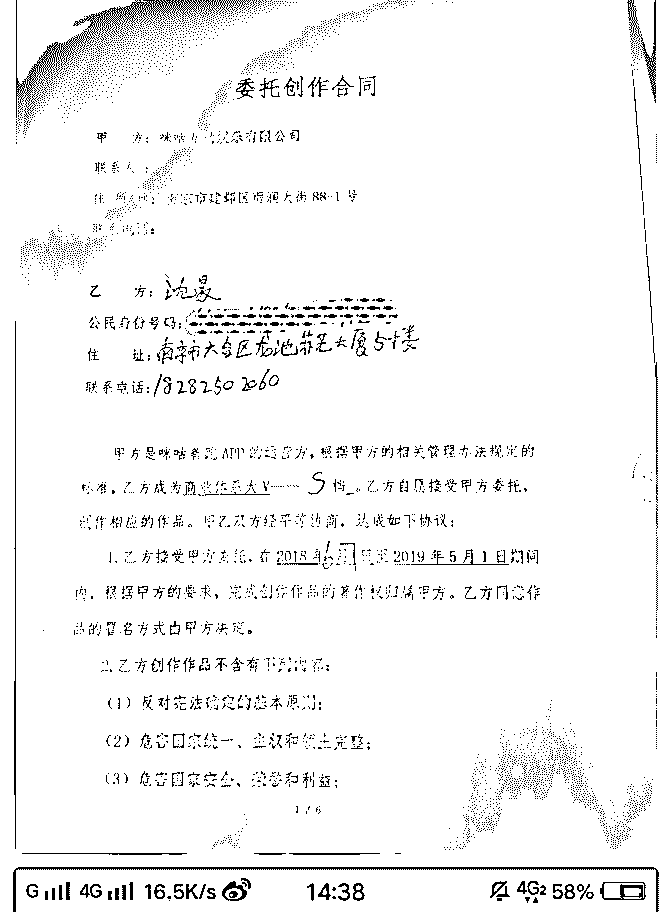 委托创作合同
甲 方：咪咕互动娱乐有限公司
联系人：
住 所：南京市建邺区雨润大街88-1号
联系电话：
乙 方：沈晟
公民身份号码：
住 址：南京市大厦5十楼
联系电话：18282502060
甲方是咪咕善跑APP的运营方，根据甲方的相关管理办法规定的
标准，乙方成为商业体系大V—— S 档 。乙方自愿接受甲方委托，
创作相应的作品。甲乙双方经平等协商，达成如下协议：
1.乙方接受甲方委托，在2018年6月1日至2019年5月1日期间
内，根据甲方的要求，完成创作作品的著作权归属甲方。乙方同意作
品的署名方式由甲方决定。
2.乙方创作作品不含有下列内容：
（1）反对宪法确定的基本原则；
（2）危害国家统一、主权和领土完整；
（3）危害国家安全、荣誉和利益；
1 / 6
G 4G 16.5K/s 14:38 4G2 58%